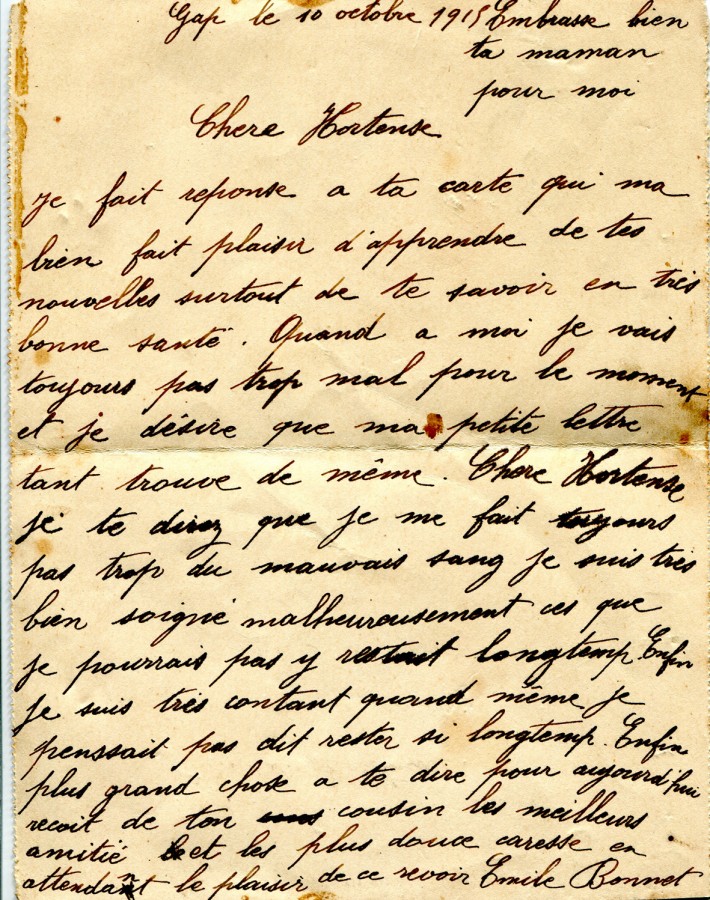 Gap le 10 octobre 1915
Embrasse bien
ta maman
pour moi
Chere Hortense
Je fait reponse a ta carte qui ma
bien fait plaisir d'apprendre de tes
nouvelles surtout de te savoir en très
bonne santé. Quand a moi je vais
toujours pas trop mal pour le moment
et je désire que ma petite lettre
tant trouve de même. Chere Hortense
je te direz que je me fait toujours
pas trop du mauvais sang je suis très
bien soigné malheureusement ces que
je pourrais pas y restait longtemp. Enfin
je suis très contant quand même je
penssait pas dit rester si longtemp. Enfin
plus grand chose a te dire pour aujourd'hui
recoit de ton cousin les meilleurs
amitié et les plus douce caresse en
attendant le plaisir de ce revoir Emile Bonnet